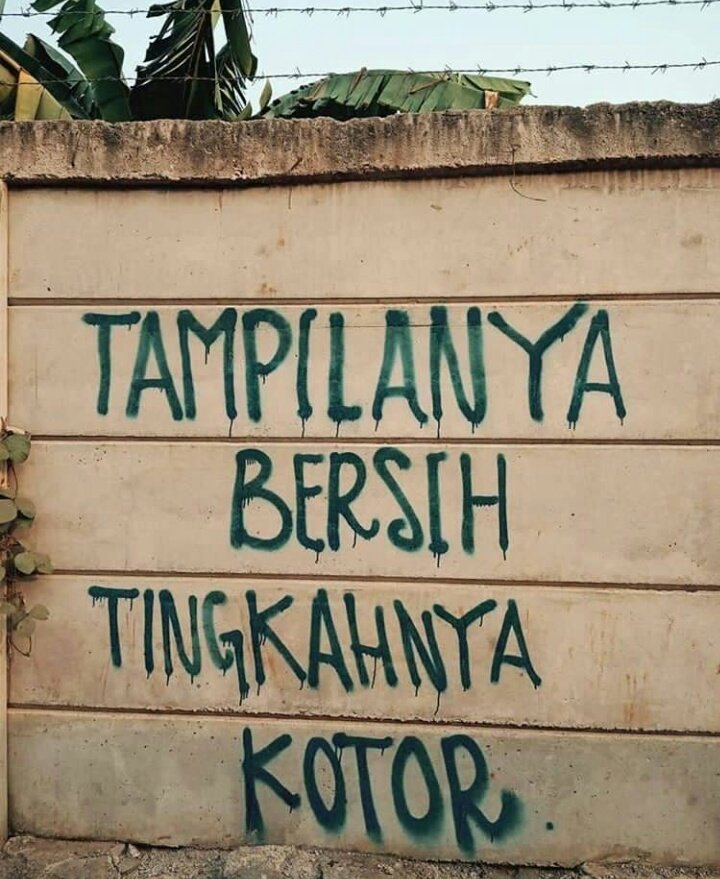 TAMPILANYA
BERSIH
TINGKAHNYA
KOTOR.